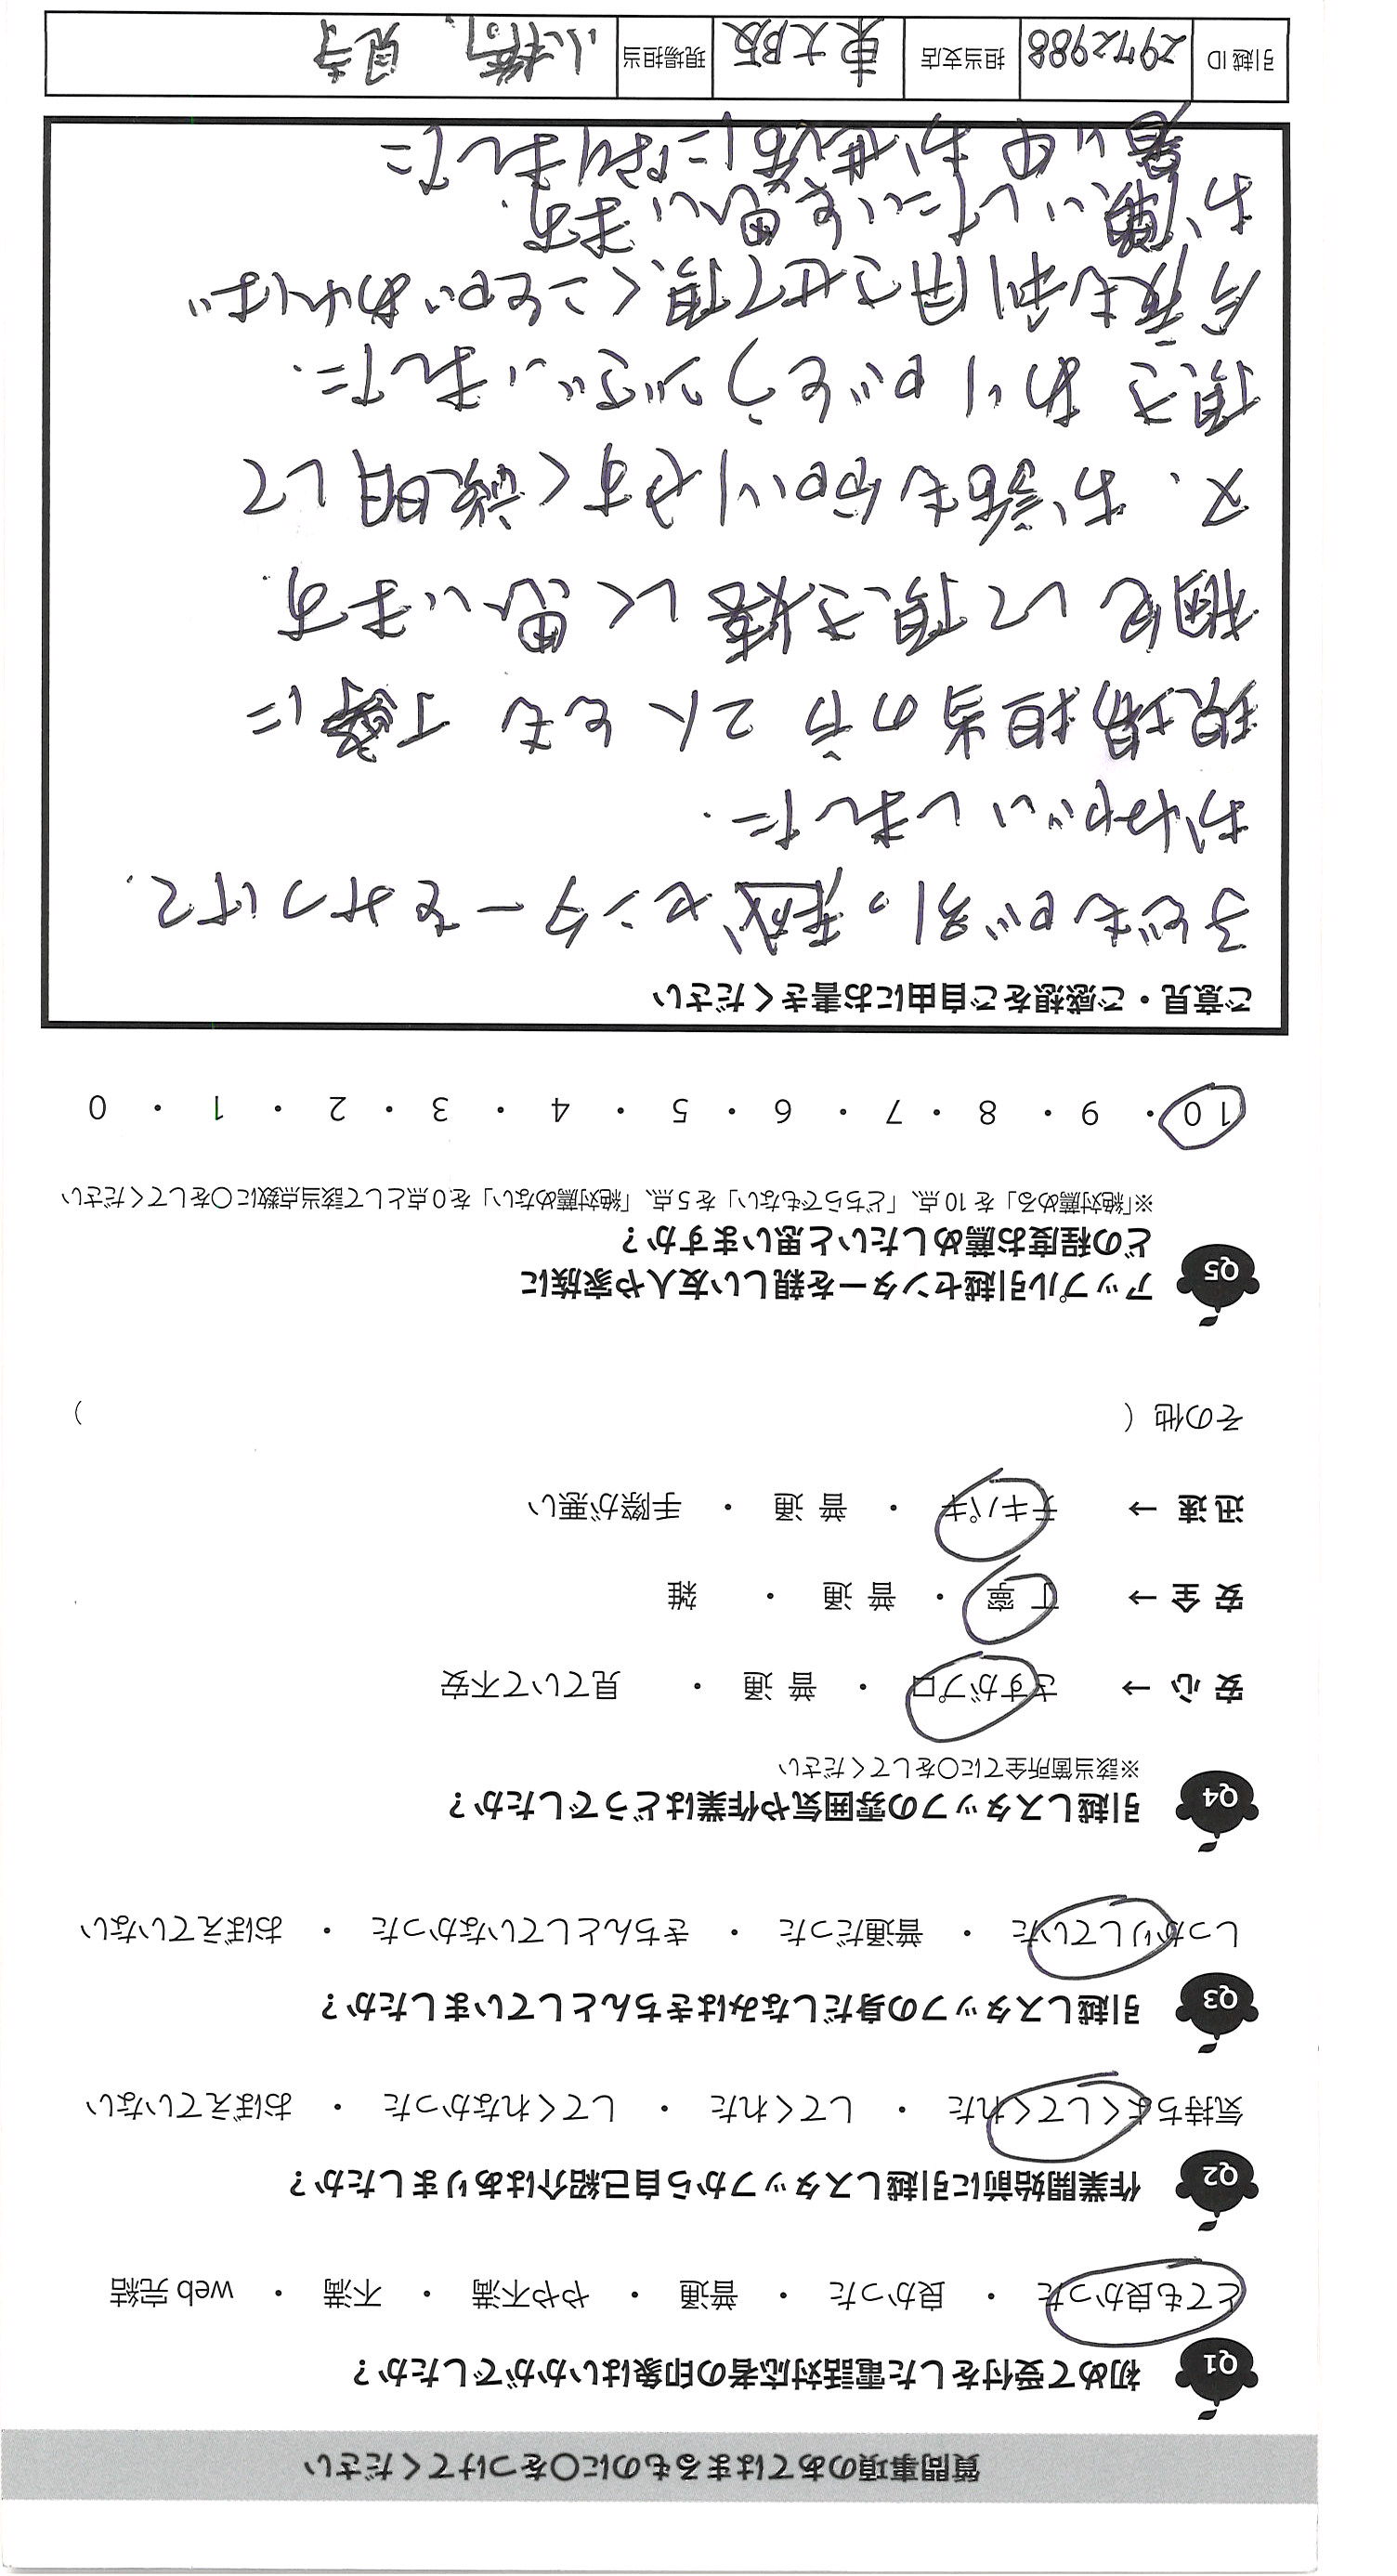 質問事項のあてはまるものに○をつけてください
Q1 初めて受付をした電話対応者の印象はいかがでしたか？
とても良かった ・ 良かった ・ 普通 ・ やや不満 ・ 不満 ・ web 完結
Q2 作業開始前に引越しスタッフから自己紹介はありましたか？
気持ちよくしてくれた ・ してくれた ・ してくれなかった ・ おぼえていない
Q3 引越しスタッフの身だしなみはきちんとしていましたか？
しっかりしていた ・ 普通だった ・ きちんとしていなかった ・ おぼえていない
Q4 引越しスタッフの雰囲気や作業はどうでしたか？
※該当箇所全てに○をしてください
安 心 → さすがプロ ・ 普 通 ・ 見ていて不安
安 全 → 丁 寧 ・ 普 通 ・ 雑
迅 速 → テキパキ ・ 普 通 ・ 手際が悪い
その他（ ）
Q5 アップル引越センターを親しい友人や家族に
どの程度お薦めしたいと思いますか？
※「絶対薦める」を 10 点、「どちらでもない」を 5 点、「絶対薦めない」を 0 点として該当点数に○をしてください
10 ・ 9 ・ 8 ・ 7 ・ 6 ・ 5 ・ 4 ・ 3 ・ 2 ・ 1 ・ 0
ご意見・ご感想をご自由にお書きください
子どもが引っ越センターをみつけて.
おねがいしました.
現場担当の方 2人とも 丁寧に
梱包して頂き嬉しく思います.
又、お話も分かりやすく説明して
頂き ありがとうございました.
今度も利用させて頂くことがあれば
お願いしたいと思います.
暑い中 お世話になりました
引越 ID 2972988 担当支店 東大阪 現場担当 小橋、見寺